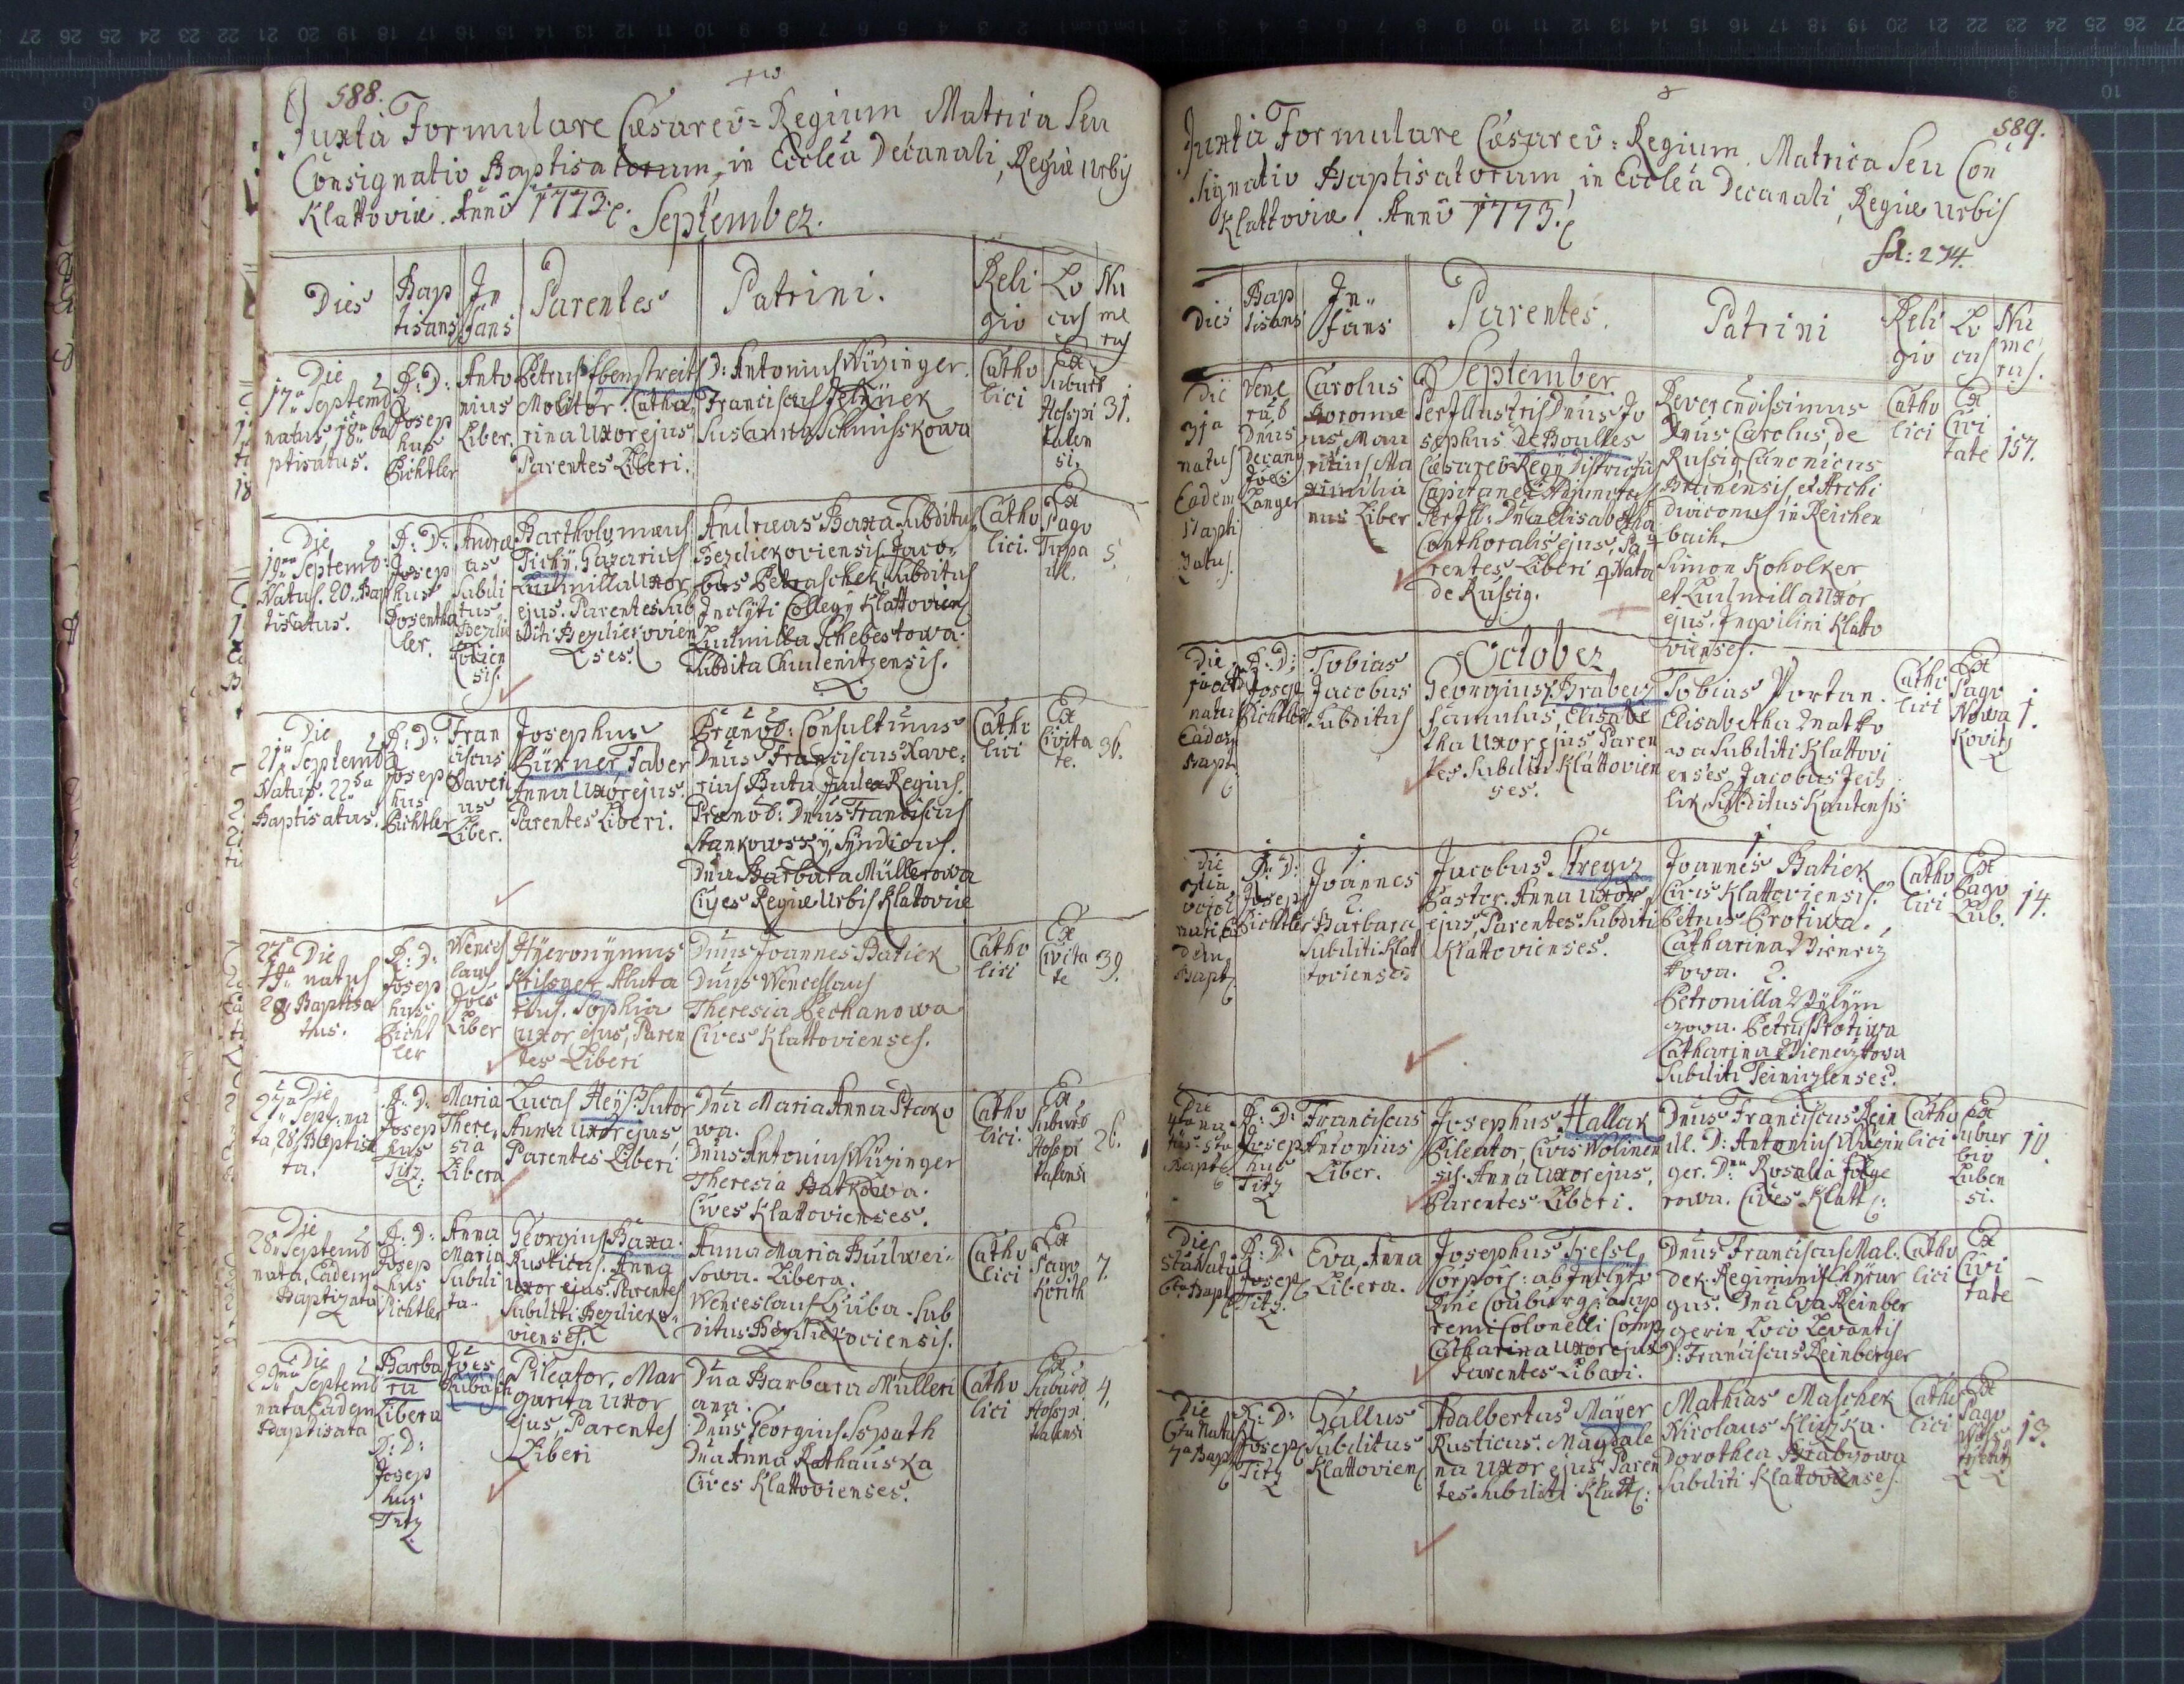 588.
Juxta Formulare Cæsareo = Regium Matrica Seu
Consignatio Baptisatorum, in Ecclea Decanali, Regiæ Urbis
Klattoviæ. Anno 1773.
September.
Dies
Bap
tisans
In
fans
Parentes
Patrini.
Reli
gio
Lo
cus
Nu
me
rus
Die
17a Septemb
natus, 18a ba
ptisatus.
P: D:
Josep
hus
Pichtler
Anto
nius
Liber.
Petrus Ebenstreit
Molitor. Catha,
rina Uxor ejus
Parentes Liberi.
D: Antonius Wizinger.
Franciscus Jelinek
Susanna Schmisskowa
Catho
lici
Ex
Suburb
Hospi
talen
si.
31.
Die
19na Septemb:
Natus. 20. Bap
tisatus.
P: D:
Josep
hus
Rosentha
ler.
Andre
as
Subdi
tus
Bezdie
kovien
sis.
Bartholomæus
Tichy, Gazarius
Ludmilla Uxor
ejus. Parentes Sub
diti Bezdiekovien
ses.
Andreas Baxa Subditus
Bezdiekoviensis. Jaco,
bus Petraschek, Subditus
Inclyti Collegy Klattovien
Ludmilla Schebestowa.
Subdita Chudenitzensis.
Catho
lici.
Ex
Pago
Tupa
dl.
5.
Die
21a Septemb
Natus. 22da
Baptisatus.
P: D:
Josep
hus
Pichtler
Fran
ciscus
Xaveri
us
Liber.
Josephus
Pürner Faber
Anna Uxor ejus.
Parentes Liberi.
Prænob: Consultimus
Dnus Franciscus Xave,
rius Butu, Judex Regius.
Prænob: Dnus Franciscus
Stankowsky, Syndicus.
Dna Barbara Müllerowa
Cives Regiæ Urbis Klatoviæ
Catho
lici
Ex
Civita
te.
36.
27a Die
natus
28 Baptisa
tus.
P: D:
Josep
hus
Picht
ler
Wences
laus
Joes
Liber
Hyeronymus
Aluta
rius. Sophia
Uxor ejus, Paren
tes Liberi
Dnus Joannes Batiek
Dnus Wenceslaus
Theresia Pechanowa
Cives Klattovienses.
Catho
lici
Ex
Civita
te
39.
Die
27a Sept: na
ta, 28 Baptisa
ta.
P: D:
Josep
hus
Titz
Maria
There,
sia
Libera
Lucas Heys Sutor
Anna Uxor ejus,
Parentes Liberi
Dna Maria Anna Stako
wa.
Dnus Antonius Wizinger
Theresia Batkowa.
Cives Klattovienses.
Catho
lici.
Ex
Suburb
Hospi
talensi
26.
Die
28 Septemb
nata, Eadem
Baptizata
P: D:
Josep
hus
Pichtler
Anna
Maria
Subdi
ta.
Georgius Baxa.
Rusticus. Anna
Uxor ejus. Parentes
Subditi Bezdieko,
vienses.
Anna Maria Budwei,
sowa. Libera.
Wenceslaus Huba. Sub
ditus Bezdiekoviensis.
Catho
lici
Ex
Pago
Korith
7.
Die
29na Septemb
nata Eadem
Baptisata
Barba
ra
Libera
P: D:
Josep
hus
Titz
Joes
Kubasch
Pileator, Mar
garita Uxor
ejus, Parentes
Liberi
Dna Barbara Mülleri
ana.
Dnus Georgius Spath
Dna Anna Rathauska
Cives Klattovienses.
Catho
lici
Ex
Suburb
Hospi
talensi
4.
589.
Juxta Formulare Cæsareo = Regium, Matrica Seu Con
signatio Baptisatorum, in Ecclea Decanali, Regiæ Urbis
Klattoviæ. Anno 1773.
fol: 274.
Dies
Bap
tisans
In,
fans
Parentes.
Patrini
Reli
gio
Lo
cus
Nu
me
rus.
September
Die
natus
Eadem
Bapti
zatus.
Vene
rab
Dnus
Decang
Joes
Langer
Carolus
Borome
us Mau
ritius Ma
ximilia
nus Liber
Per Illustris Dnus Jo
sephus De Boulles
Cæsareo Regij Districtus
Capitanei Adjunctus
Per Ill: Dna Elisabetha
Conthoralis ejus, Pa
rentes Liberi Nata
de Russig.
Reverendissimus
Dnus Carolus, de
Russig, Canonicus
Brunensis, et Archi
diaconus in Reichen
bach.
Simon Koholker
et Ludmilla Uxor
ejus, Inquilini Klatto
vienses.
Catho
lici
Ex
Civi
tate
157.
October
Die
natus
Eadem
Bapt
P: D:
Josep
Pichtler
Tobias
Jacobus
Subditus
Georgius Brabetz
famulus, Elisabe
tha Uxor ejus Paren
tes Subditi Klattovien
ses.
Tobias Portan.
Elisabetha Watko
wa Subditi Klattovi
enses. Jacobus Jeit
lik, Subditus Kautensis
Catho
lici
Ex
Pago
Nowa
Kovitz
1.
Die
nati Ea
dem
Bapt
P: D:
Josep
Pichtler
1.
Joannes
2.
Barbara
Subditi Klat
tovienses
Jacobus Stregtz
Pastor. Anna Uxor
ejus, Parentes Subditi
Klattovienses.
1
Joannes Batiek
Civis Klattoviensis.
Petrus Protiwa.
Catharina Wieneiz
kowa. 2.
Petronilla Wylym
zowa. Petrus Protiwa
Catharina Wieneizkowa
Subditi Teinizlenses.
Catho
lici
Ex
Pago
Lub.
14.
Die
4ta na
tus. 5ta
Bapt
P: D:
Josep
hus
Titz
Franciscus
Antonius
Liber.
Josephus Hallak
Pileator, Civis Wolinen
sis. Anna Uxor ejus,
Parentes Liberi.
Dnus Franciscus Rein
dl. D: Antonius Wizin
ger. Dna Rosalia Folge
rowa. Cives Klatt:
Catho
lici
Ex
Subur
bio
Luben
si.
10.
Die
5ta Nata
6ta Bapt
P: D:
Josep
Titz
Eva, Anna
Libera.
Josephus Tressl,
Corpor: ab Inclyto
Couburg:
Colonelli Comp
Catharina Uxor ejus
Parentes Liberi.
Dnus Franciscus Mal.
dek. Regiminis Chyrur
gus. Dna Eva Reinber
gerin, Loco Levantis
D: Franciscus Reinberger
Catho
lici
Ex
Civi
tate
Die
6ta Natus
7a Bapt
P: D:
Josep
Titz
Gallus
Subditus
Klattovien
Adalbertus Mayer
Rusticus. Magdale
na Uxor ejus, Paren
tes Subditi Klatt:
Mathias Maschek
Nicolaus Klizka.
Dorothea Brabzowa
Subditi Klattovienses.
Catho
lici
Ex
Pago
13.